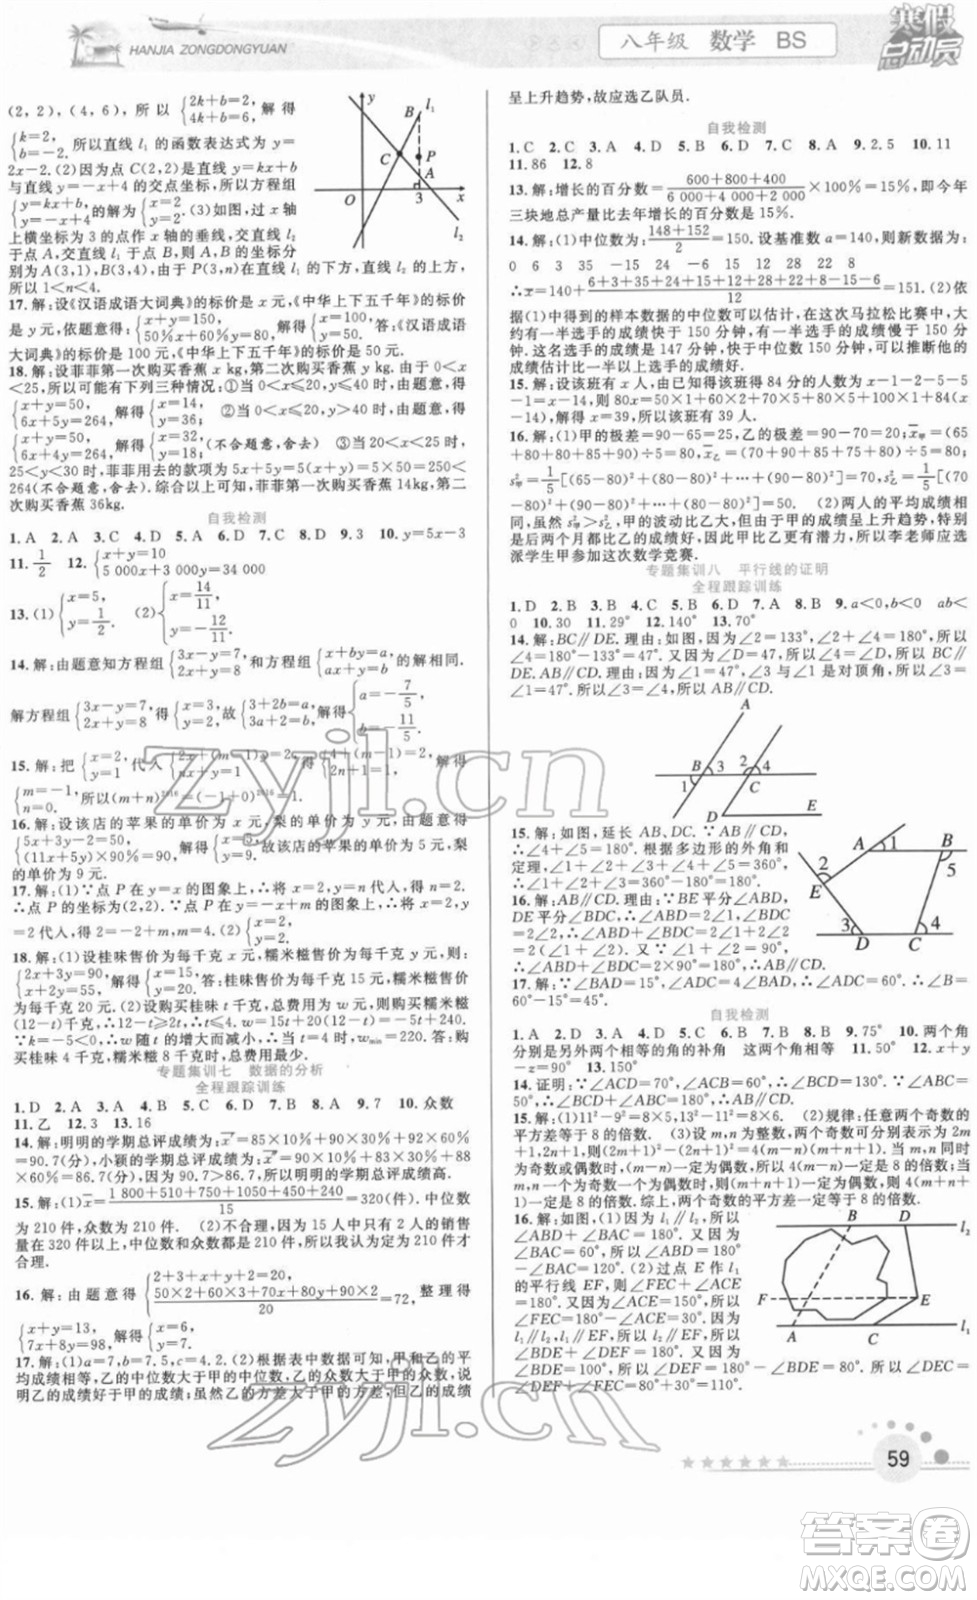 HANJIA ZONGDONGYUAN
八年级 数学 BS
寒假
总动员
(2,2),(4,6),所以{2k+b=2, 4k+b=6,解得
{k=2, b=-2.所以直线 l₁ 的函数表达式为 y=
2x-2.(2)因为点 C(2,2)是直线 y=kx+b
与直线 y=-x+4 的交点坐标,所以方程组
{y=kx+b, y=-x+4 的解为{x=2, y=2.(3)如图,过 x 轴
上横坐标为 3 的点作 x 轴的垂线,交直线 l₂
于点 A,交直线 l₁ 于点 B,则点 A,B 的坐标分
别为 A(3,1),B(3,4),由于 P(3,n)在直线 l₁ 的下方,直线 l₂ 的上方,
所以 1<n<4.
17.解:设《汉语成语大词典》的标价是 x 元,《中华上下五千年》的标价
是 y 元,依题意,得{x+y=150, 50%x+60%y=80,解得{x=100, y=50.答:《汉语成语
大词典》的标价是 100 元,《中华上下五千年》的标价是 50 元.
18.解:设菲菲第一次购买香蕉 x kg,第二次购买香蕉 y kg.由题意,得 0<x
<25,所以可能有下列三种情况:①当 0<x≤20,y≤40 时,则
{x+y=50, 6x+5y=264,解得{x=14, y=36; ②当 0<x≤20,y>40 时,则
{x+y=50, 6x+4y=264,解得{x=32, y=18;(不合题意,舍去) ③当 20<x<25 时,则
25<y<30,菲菲用去的款项为 5x+5y=5(x+y)=5×50=250<
264(不合题意,舍去).综合以上可知,菲菲第一次购买香蕉 14kg,第二
次购买香蕉 36kg.
自我检测
1.A 2.A 3.C 4.C 5.C 6.D 7.C 8.D 9.3 10.y=5x-3
11.1/2 12.{x+y=10, 5 000x+3 000y=34 000
13.(1){x=5, y=-1/2. (2){x=14/11, y=-6/11.
14.解:由题意知方程组{3x-y=7, 2x+y=8 和方程组{x+by=a, ax+y=b 的解相同.
解方程组{3x-y=7, 2x+y=8 得{x=3, y=2,故{3+2b=a, 3a+2=b,解得{a=-7/5, b=-11/5.
15.解:把{x=2, y=1 代入{2x+(m-1)y=2, nx+y=1 得{4+(m-1)=2, 2n+1=1,解得
{m=-1, n=0.所以(m+n)²⁰¹⁶=(-1+0)²⁰¹⁶=1.
16.解:设该店的苹果的单价为 x 元,梨的单价为 y 元,由题意得
{5x+3y-2=50, (11x+5y)×90%=90,解得{x=5, y=9.故该店的苹果的单价为 5 元,
梨的单价为 9 元.
17.解:(1)∵点 P 在 y=x 的图象上,∴将 x=n 代入,得 n=2.
∴点 P 的坐标为(2,2).∵点 P 在 y=-x+m 的图象上,∴将 x=2,y
=2代入,得 2=-2+m,m=4.(2){x=2, y=2.
18.解:(1)设桂味售价为每千克 x 元,糯米糍售价为每千克 y 元,则:
{2x+3y=90, x+2y=55,解得{x=15, y=20.答:桂味售价为每千克 15 元,糯米糍售价
为每千克 20 元.(2)设购买桂味 t 千克,总费用为 w 元,则购买糯米糍
(12-t)千克.∴12-t≥2t,∴t≤4.w=15t+20(12-t)=-5t+240.
∵k=-5<0,∴w 随 t 的增大而减小,∴当 t=4 时,wmin=220.答:购
买桂味 4 千克,糯米糍 8 千克时,总费用最少.
专题集训七 数据的分析
全程跟踪训练
1.D 2.A 3.A 4.A 5.D 6.B 7.A 8.A 9.7 10.众数
11.乙 12.3 13.16
14.解:明明的学期总评成绩为:x̄=85×10%+90×30%+92×60%=
90.7(分),小颖的学期总评成绩为:x̄=90×10%+83×30%+88×60%
=86.7(分),因为 90.7>86.7,所以明明的学期总评成绩高.
15.解:(1)x̄=(1 800+510+750+1050+450+240)/15=320(件).中位数
为 210 件,众数为 210 件. (2)不合理,因为 15 人中有 13 人的销售
量在 320 件以上,中位数和众数都是 210 件,所以我认为定 210 件才
合理.
16.解:由题意得{2+3+x+y+2=20, (50×2+60×3+70x+80y+90×2)/20=72,整理得
{x+y=13, 7x+8y=98,解得{x=6, y=7.
17.解:(1)a=7,b=7.5,c=4.2. (2)根据表中数据可知,甲和乙的平
均成绩相等,乙的中位数大于甲的中位数,乙的众数大于甲的众数,说
明乙的成绩好于甲的成绩;虽然乙的方差大于甲的方差,但乙的成绩
呈上升趋势,故应选乙队员.
自我检测
1.C 2.C 3.A 4.D 5.D 6.C 7.C 8.A 9.2.5 10.11
11.86 12.8
13.解:增长的百分数=(600+800+400)/(6 000+4 000+2 000)×100%=15%,即今年
三块地总产量比去年增长的百分数是 15%.
14.解:(1)中位数:(148+152)/2=150.设基准数 a=140,则新数据为:
0 6 3 35 -15 24 -6 -15 34 12 22 8 5
∴x̄=140+(6+3+35+24+34+12+22+8-15-6)/12=151.(2)依
据(1)中得到的样本数据的中位数可以估计,在这次马拉松比赛中,大
约有一半选手的成绩快于 150 分钟,有一半选手的成绩慢于 150 分
钟.这名选手的成绩是 147 分钟,快于中位数 150 分钟,可以推断他的
成绩估计比一半以上选手的成绩好.
15.解:设该班有 x 人,由题意得该班得 84 分的人数为 x-1-2-5-5
-1=x-14,则 80x=50+60×2+70×5+90×5+100×1+84(x
-14),解得 x=39,所以该班有 39 人.
16.解:(1)甲的极差=90-65=25,乙的极差=90-70=20;x̄甲=(65
+80+80+85+90)÷5=80,x̄乙=(70+90+85+75+80)÷5=80;
s²甲=1/5[(65-80)²+(80-80)²+…+(90-80)²]=70,s²乙=1/5[(70
-80)²+(90-80)²+…+(80-80)²]=50. (2)两人的平均成绩相
同,虽然 s²甲>s²乙,甲的波动比乙大,但由于甲的成绩呈上升趋势,特别
是后两个月都比乙的成绩好,说明甲比乙更有潜力,所以李老师应选
派学生甲参加这次数学竞赛.
专题集训八 平行线的证明
全程跟踪训练
1.D 2.B 3.B 4.C 5.B 6.D 7.B 8.A 9.a<0,b<0 ab<
0 10.30 11.29° 12.140° 13.70°
14.解:BC∥DE.理由:因为∠2=133°,∠2+∠4=180°,所以∠4=
180°-133°=47°.因为∠D=47°,所以∠4=∠D,所以 BC∥
DE.AB∥CD.理由:因为∠1=47°,∠3 与∠1 是对顶角,所以∠3=
∠1=47°.所以∠3=∠4,所以 AB∥CD.
A
B 3 2 4
1 C
D E
15.解:如图,延长 AB、DC.∵AB∥CD,
∴∠4+∠5=180°.根据多边形的外角和
定理,∠1+∠2+∠3+∠4+∠5=360°,
∴∠1+∠2+∠3=360°-180°=180°.
A 1 B
2 5
E
3 4
D C
16.解:AB∥CD.理由:∵BE 平分∠ABD,
DE平分∠BDC,∴∠ABD=2∠1,∠BDC
=2∠2.∴∠ABD+∠BDC=2∠1+2∠2
=2(∠1+∠2). 又∵∠1+∠2=90°,
∴∠ABD+∠BDC=2×90°=180°.∴AB∥CD.
17.解:∵AD⊥BC,∴∠BAD+∠ABD=90°,∠ADC=90°.
自我检测
1.A 2.D 3.D 4.A 5.C 6.B 7.B 8.B 9.75° 10.两个角
分别是另外两个相等的角的补角 这两个角相等 11.50° 12.x+y
-z=90° 13.75°
15.解:(1)11²-9²=8×5,13²-11²=8×6. (2)规律:任意两个奇数的
平方差等于 8 的倍数. (3)设 m,n 为整数,两个奇数可表示为 2m
+1,2n+1,则(2m+1)²-(2n+1)²=4(m-n)(m+n+1).当 m,n同
时为奇数或偶数时,(m-n)一定为偶数,所以 4(m-n)(m+n+1)一
定是 8 的倍数;当 m,n一奇一偶时,则(m+n+1)一定为偶数,所以 4(m-n)(m+n+
1)一定是 8 的倍数.综上,两个奇数的平方差一定等于 8 的倍数.
16.解:如图,(1)因为 l₁∥l₂,所以
∠ABD+∠BAC=180°. 因为
∠BAC=60°,所以∠ABD=180°-
∠BAC=120°.(2)过点 E 作 l₁
的平行线 EF,则∠FEC+∠ACE
=180°.又因为∠ACE=150°,所
以∠FEC=180°-∠ACE=30°.因
为 l₁∥l₂,所以 EF∥l₂,所以∠FED
+∠BDE=180°. 所以∠DEF=180°-∠BDE=80°,所以∠DEC=
∠DEF+∠FEC=80°+30°=110°.
B D l₂
F E
A C l₁
y
B l₁
C P
A
O 3 x
l₂
zyjl.cn
zyjl.cn
59
答案圈
MXQE.COM